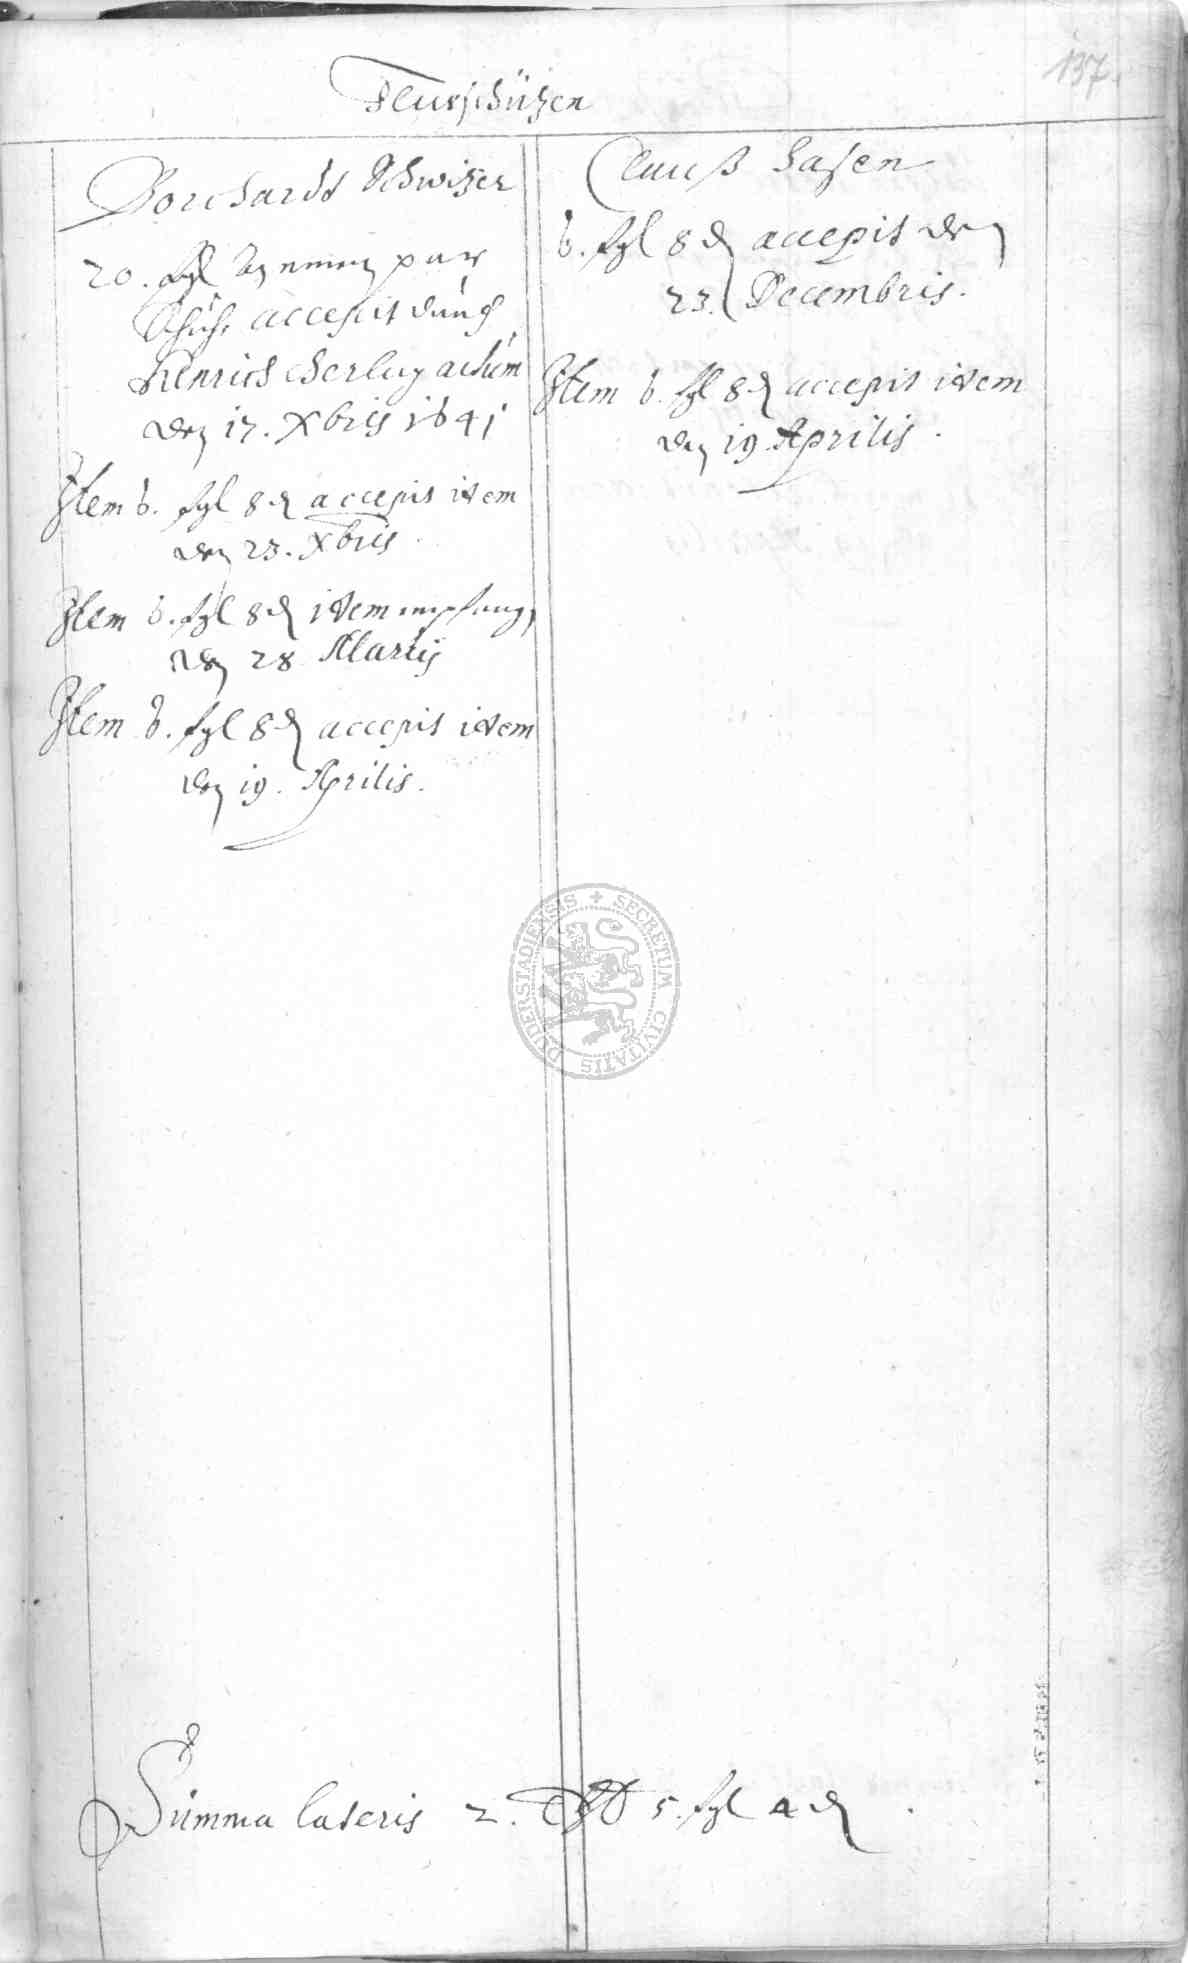 137.
Flurschützen
Borchardt Schwitzer
20. ßgl zu einem paar
Schuhe accepit durch
Henrich Gerlug actum
den 17. Xbris 1641
Item 6. ßgl 8 ₰ accepit idem
den 23. Xbris
Item 6. ßgl 8 ₰ idem empfang
den 28 Martij
Item 6. ßgl 8 ₰ accepit idem
den 19. Aprilis.
Clauß Hasen
6. ßgl 8 ₰ accepit den
23. Decembris.
Item 6. ßgl 8 ₰ accepit idem
den 19 Aprilis.
SECRETUM CIVITATIS DUDERSTADIENSIS
Summa lateris 2. 5. ßgl 4 ₰.